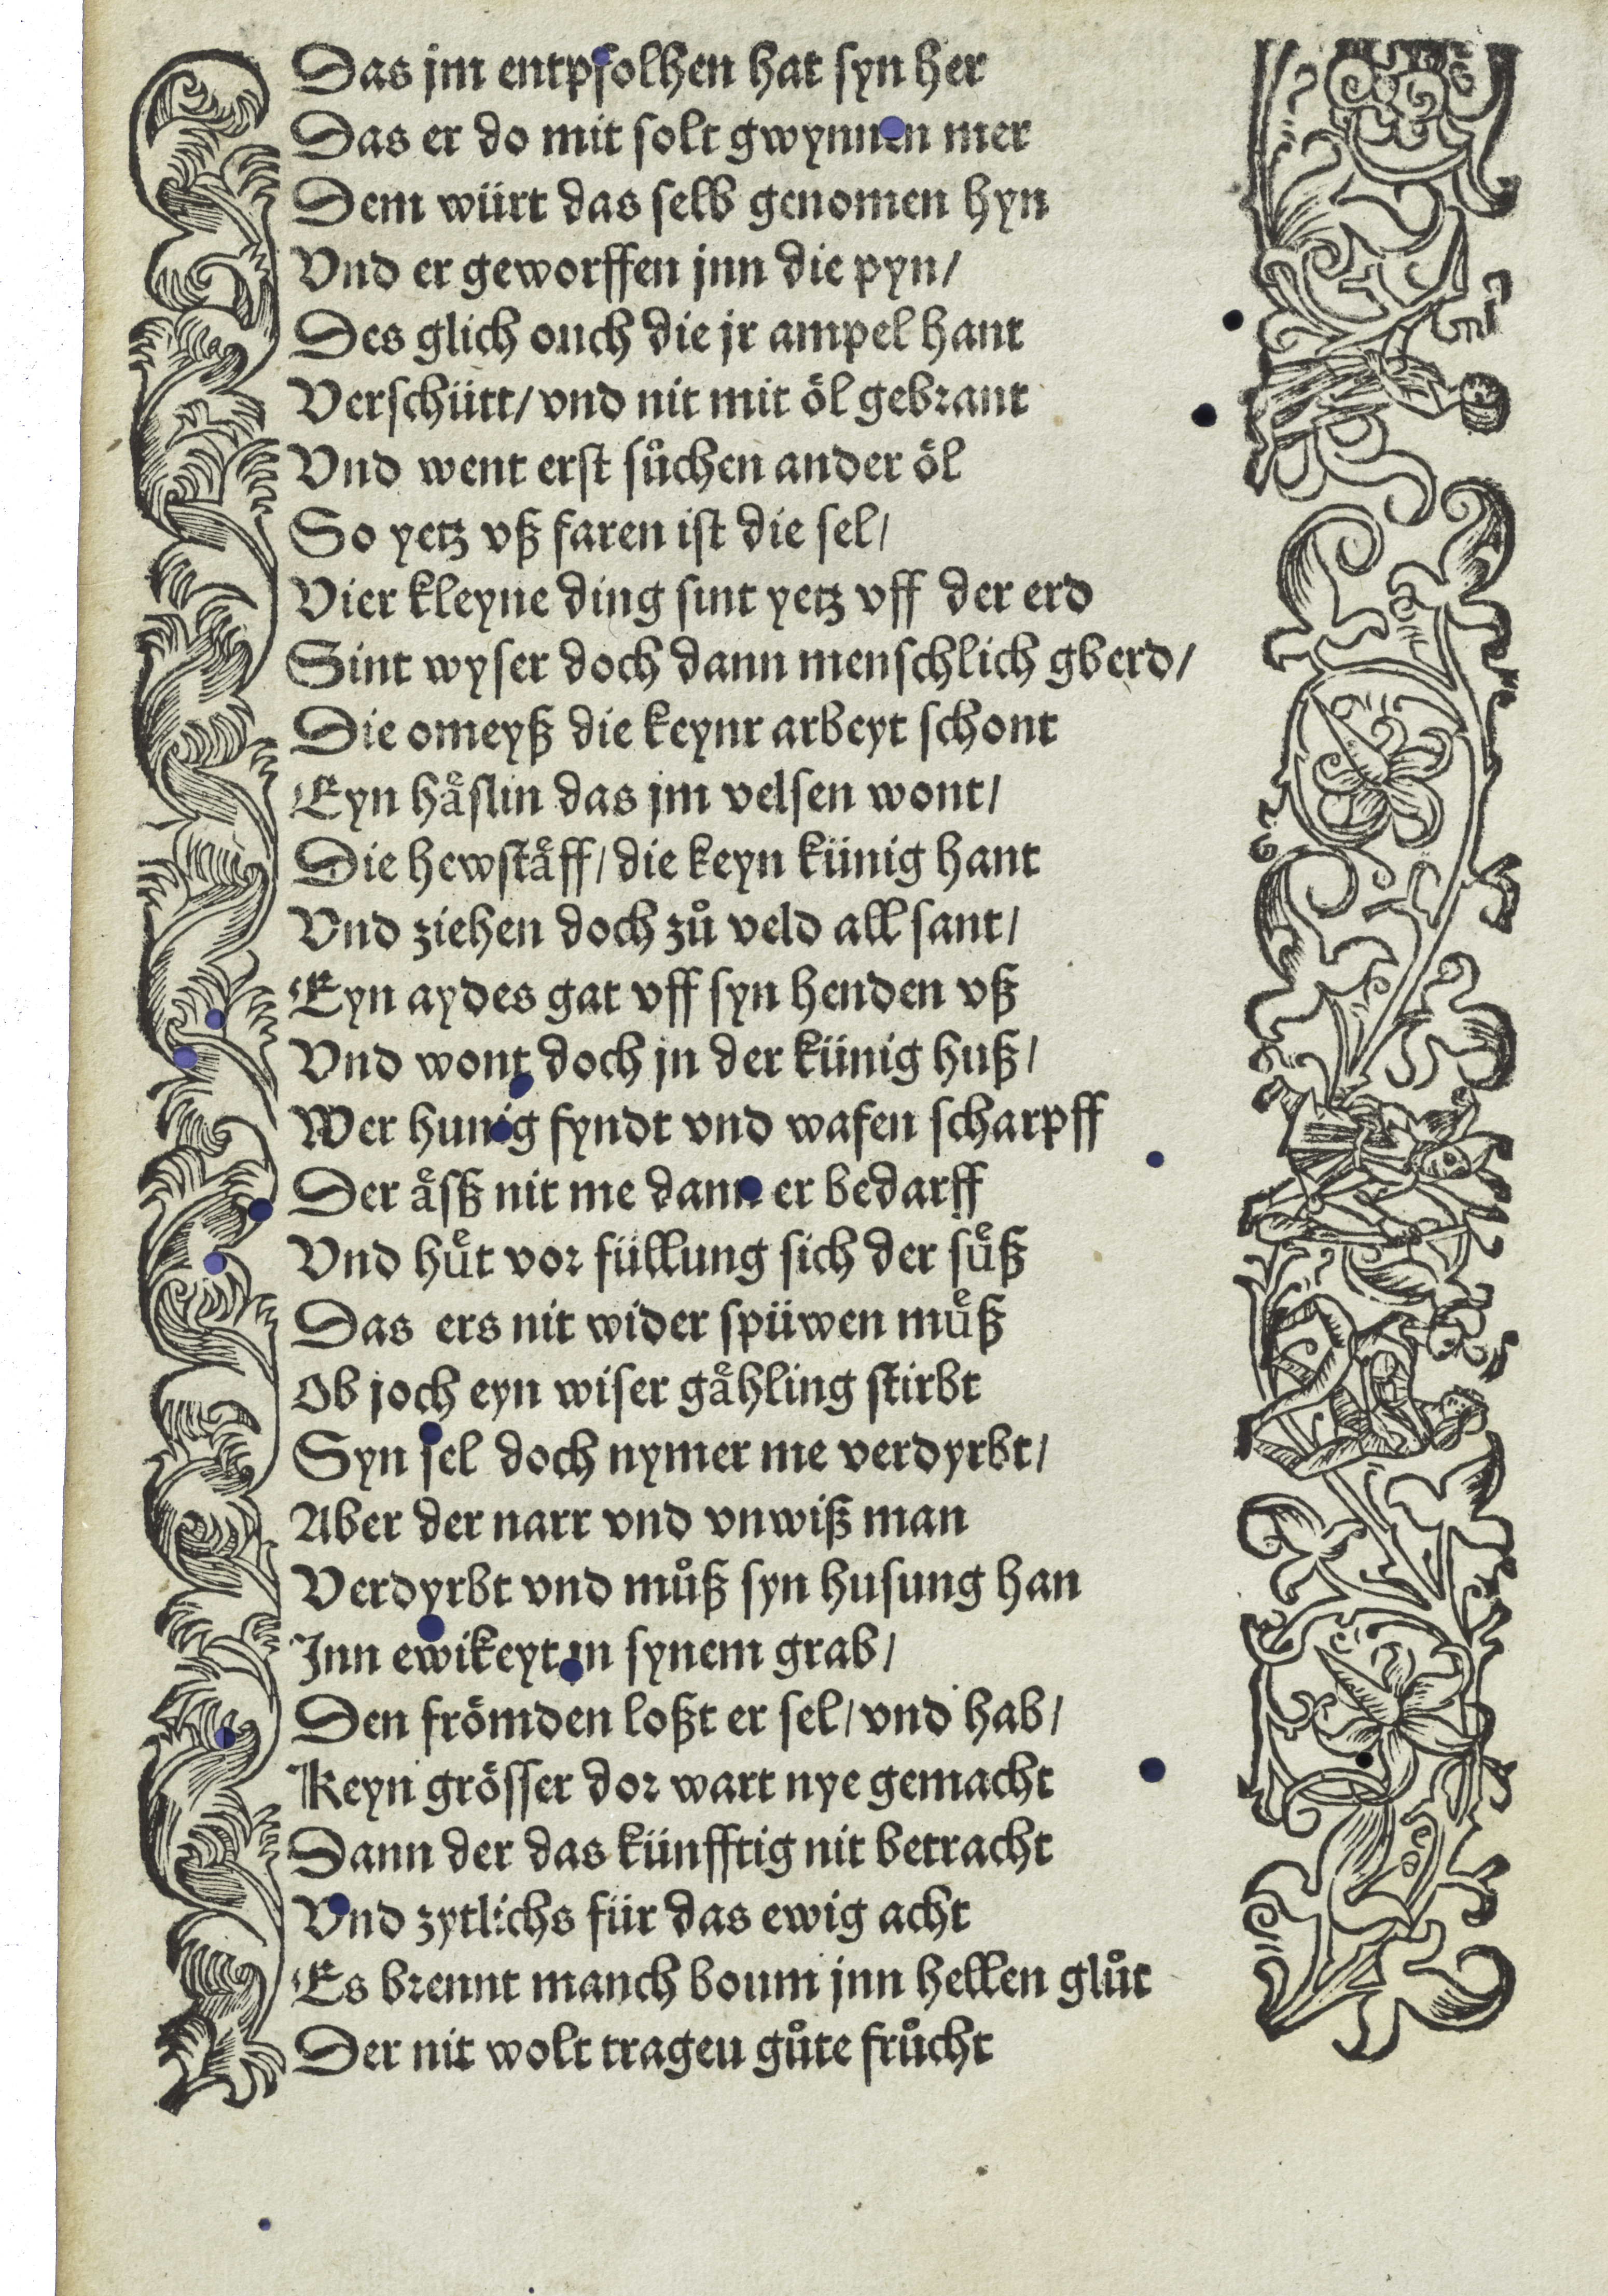 Das jm entpfolhen hat syn her
Das er do mit solt gwynnen mer
Dem würt das selb genomen hyn
Vnd er geworffen jnn die pyn/
Des glich ouch die jr ampel hant
Verschütt/ vnd nit mit öl gebrant
Vnd went erst sůchen ander öl
So yetz vß faren ist die sel/
Vier kleyne ding sint yetz vff der erd
Sint wyser doch dann menschlich gberd/
Die omeyß die keynr arbeyt schont
Eyn häͤslin das jm velsen wont/
Die hewstäͤff/ die keyn künig hant
Vnd ziehen doch zů veld all sant/
Eyn aydes gat vff syn henden vß
Vnd wont doch jn der künig huß/
Wer hunig fyndt vnd wafen scharpff
Der aͤsß nit me dann er bedarff
Vnd huͤt vor füllung sich der suͤß
Das ers nit wider spüwen muͤß
Ob joch eyn wiser gaͤhling stirbt
Syn sel doch nymer me verdyrbt/
Aber der narr vnd vnwiß man
Verdyrbt vnd můß syn husung han
Jnn ewikeyt jn synem grab/
Den frömden loßt er sel/ vnd hab/
Keyn grösser dor wart nye gemacht
Dann der das künfftig nit betracht
Vnd zytlichs für das ewig acht
Es brennt manch boum jnn hellen glůt
Der nit wolt trageu gůte frůcht